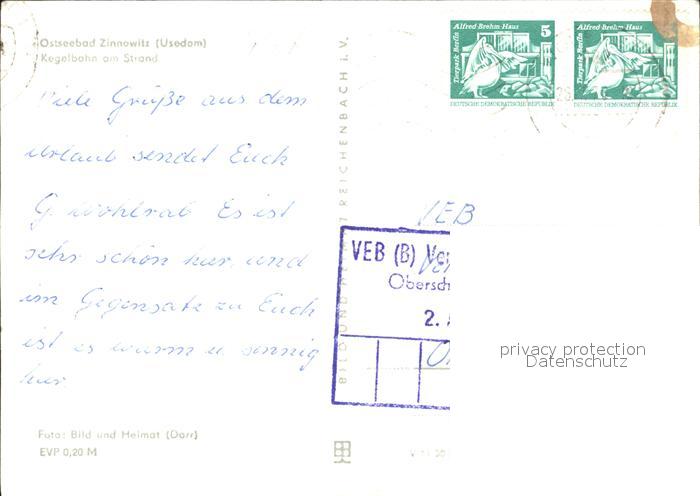 Ostseebad Zinnowitz (Usedom)
Kegelbahn am Strand
Viele Grüße aus dem
Urlaub sendet Euch
G. Wohlrab Es ist
sehr schön hier, und
im Gegensatz zu Euch
ist es warm u. sonnig
hier
Foto: Bild und Heimat (Darr)
EVP 0,20 M
BILD UND REICHENBACH i. V.
Alfred-Brehm-Haus
5
Tierpark Berlin
DEUTSCHE DEMOKRATISCHE REPUBLIK
Alfred-Brehm-Haus
Tierpark Berlin
DEUTSCHE DEMOKRATISCHE REPUBLIK
VEB
VEB (B) Ver
Obersch
2.
privacy protection
Datenschutz